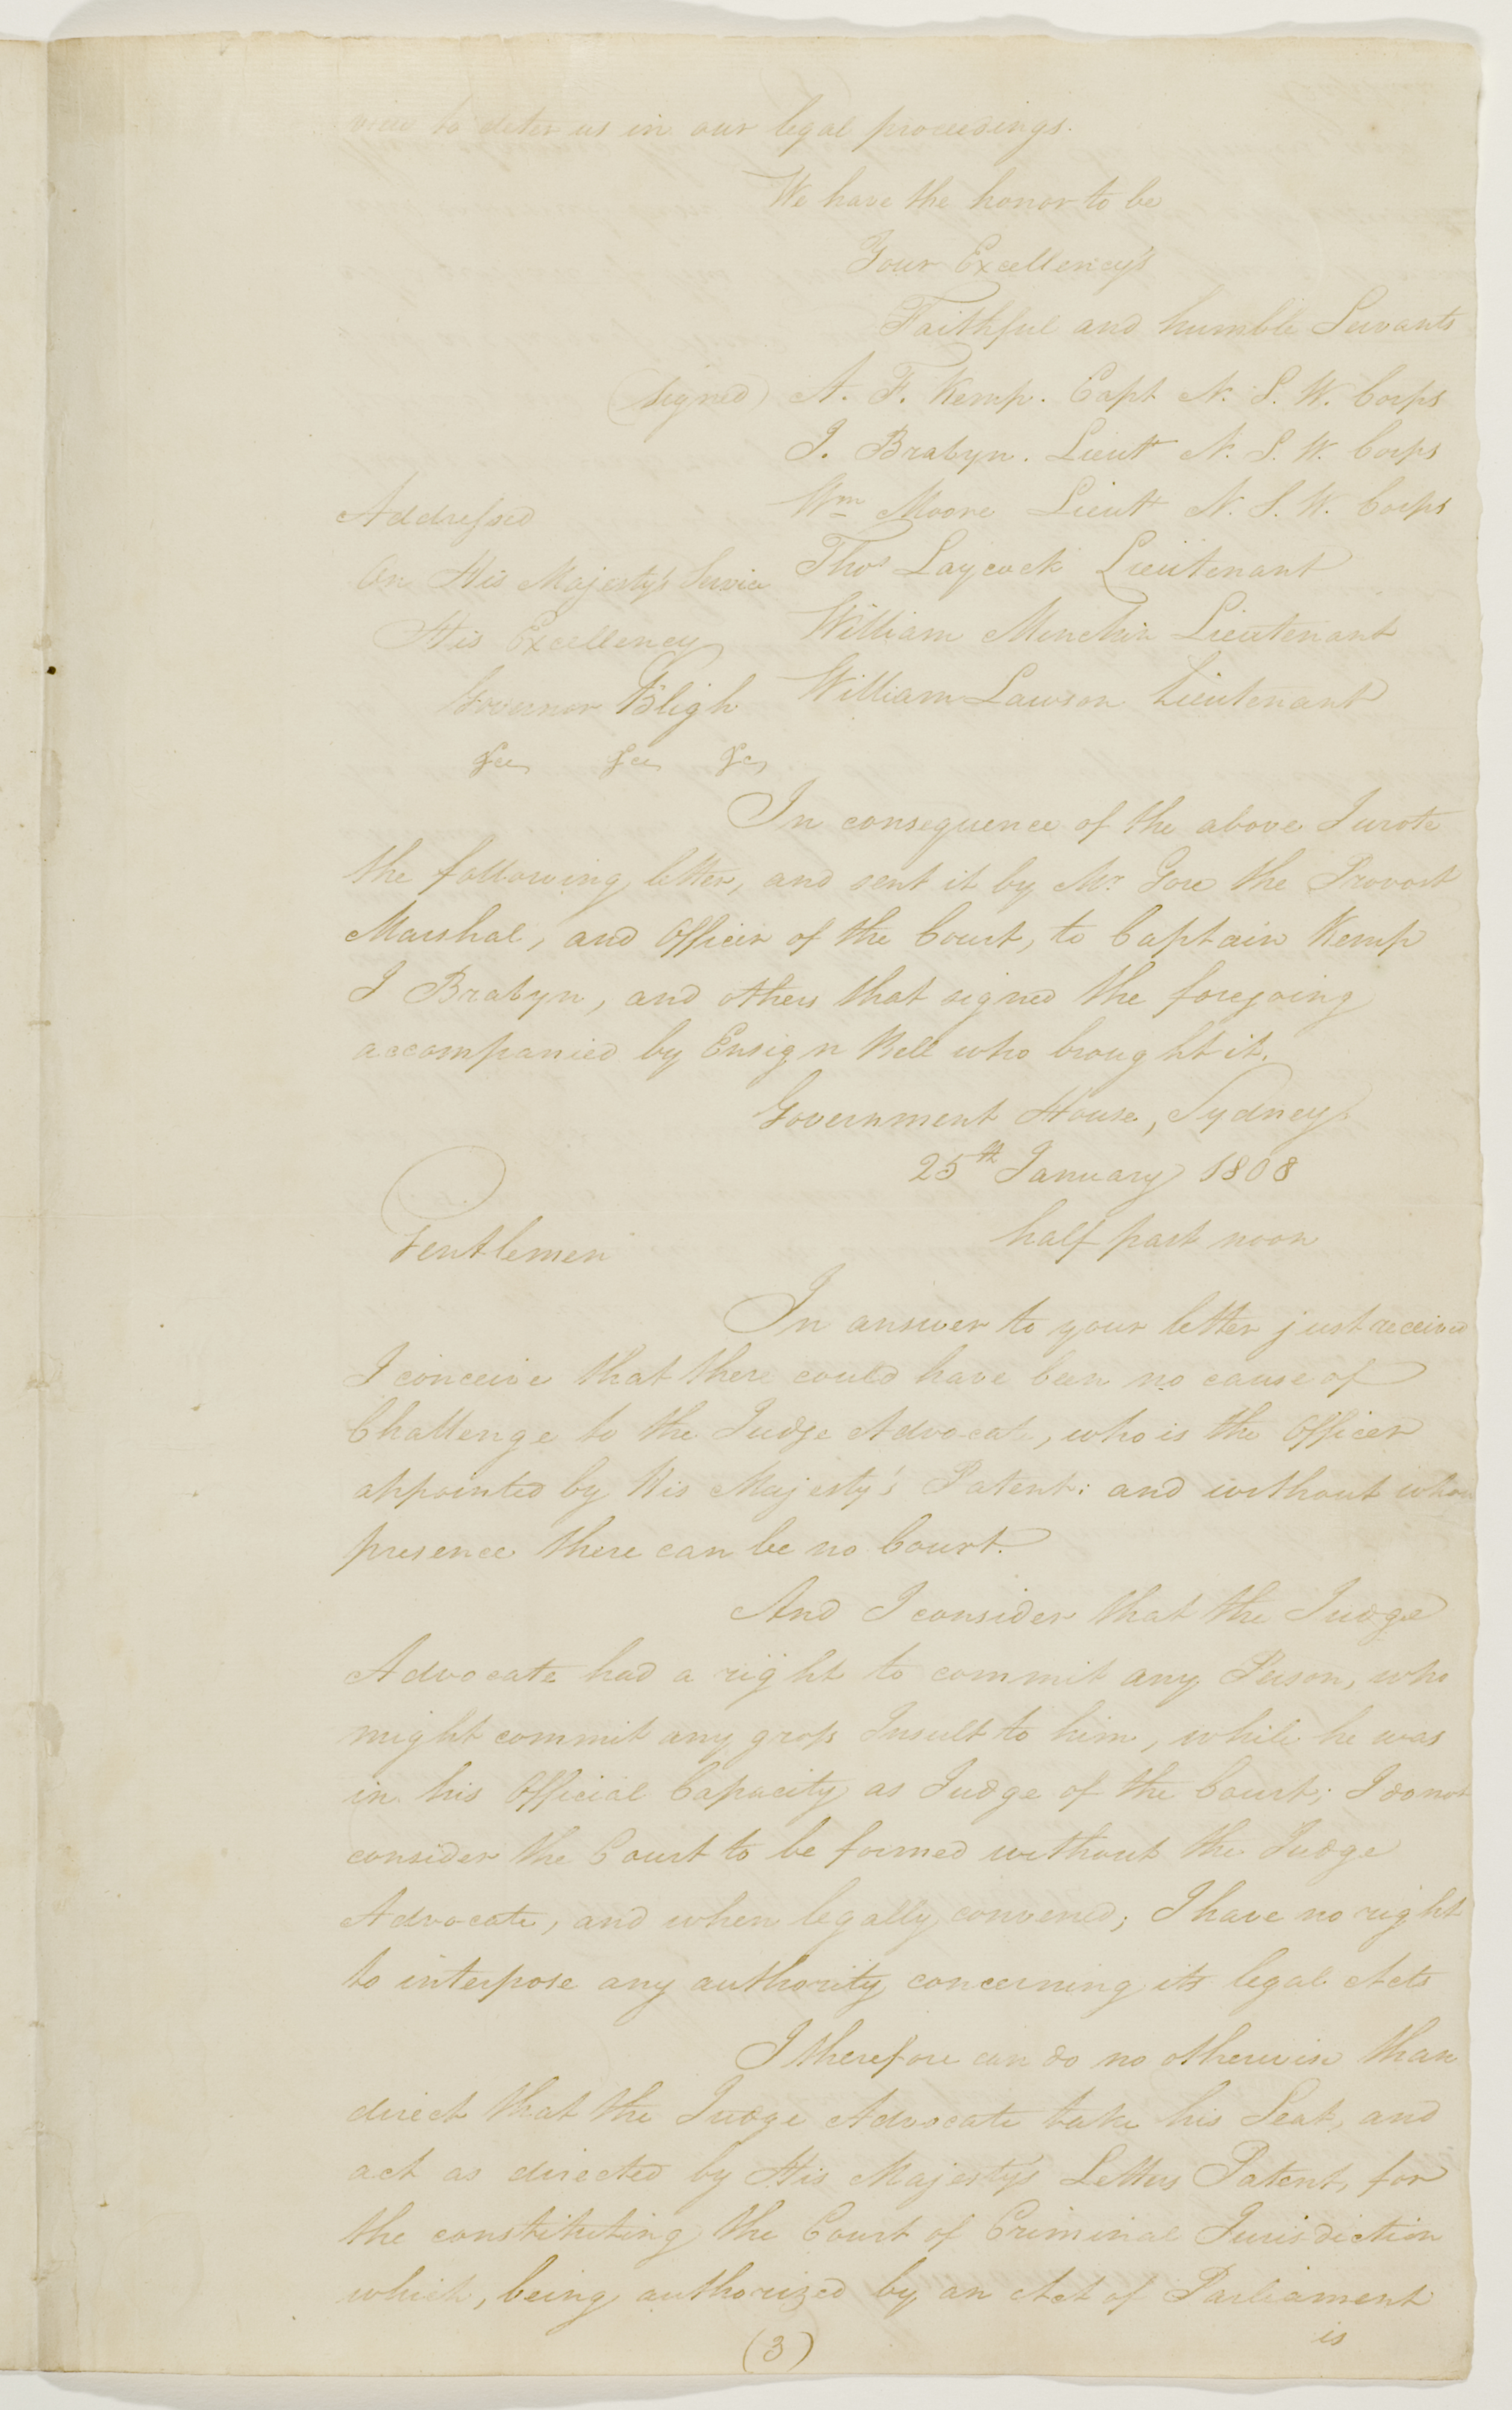 view to deter us in our legal proceedings.
We have the honor to be
Your Excellency's
Faithful and humble Servants
(signed) A. F. Kemp. Capt N. S. W. Corps
J. Brabyn. Lieut N. S. W. Corps
Wm Moore Lieut N. S. W. Corps
Thos Laycock Lieutenant
William Minchin Lieutenant
William Lawson Lieutenant
Addressed
On His Majesty's Service
His Excellency
Governor Bligh
&c &c &c
In consequence of the above I wrote
the following letter, and sent it by Mr Gore the Provost
Marshal, and Officer of the Court, to Captain Kemp
J Brabyn, and others that signed the foregoing
accompanied by Ensign Bell who brought it.
Government House, Sydney
25th January 1808
half past noon
Gentlemen
In answer to your letter just received
I conceive that there could have been no cause of
Challenge to the Judge Advocate, who is the Officer
appointed by His Majesty's Patent: and without whose
presence there can be no Court.
And I consider that the Judge
Advocate had a right to commit any Person, who
might commit any gross Insult to him, while he was
in his Official Capacity as Judge of the Court; I do not
consider the Court to be formed without the Judge
Advocate, and when legally convened; I have no right
to interpose any authority concerning its legal Acts
I therefore can do no otherwise than
direct that the Judge Advocate take his Seat, and
act as directed by His Majesty's Letters Patent, for
the constituting the Court of Criminal Jurisdiction
which, being authorized by an Act of Parliament
is
(3)